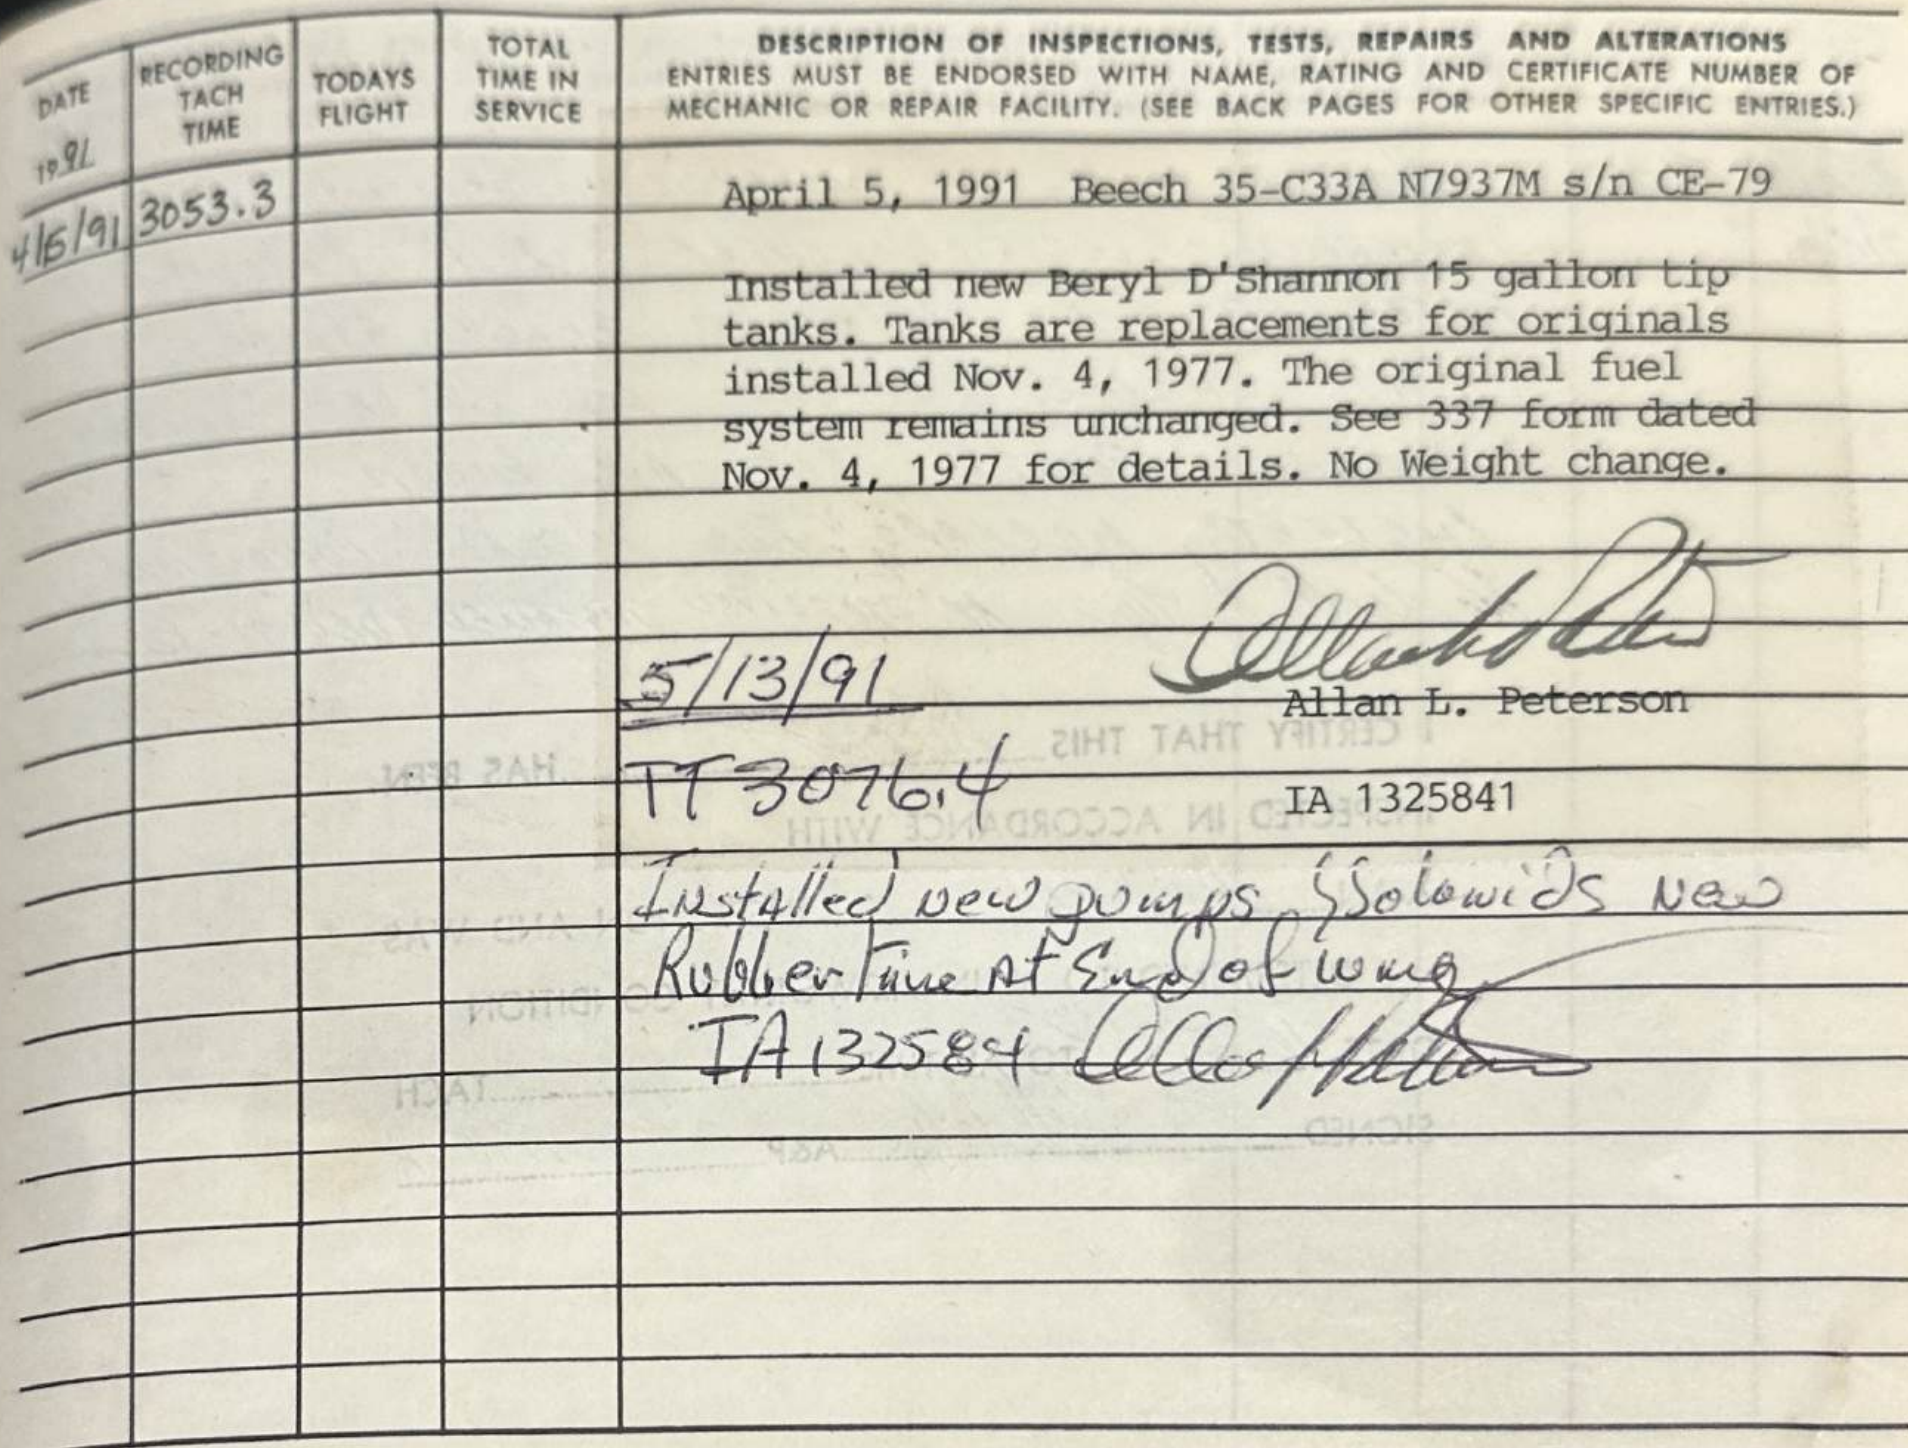 DATE
1991
RECORDING
TACH
TIME
TODAYS
FLIGHT
TOTAL
TIME IN
SERVICE
DESCRIPTION OF INSPECTIONS, TESTS, REPAIRS AND ALTERATIONS
ENTRIES MUST BE ENDORSED WITH NAME, RATING AND CERTIFICATE NUMBER OF
MECHANIC OR REPAIR FACILITY. (SEE BACK PAGES FOR OTHER SPECIFIC ENTRIES.)
4/5/91 3053.3
April 5, 1991 Beech 35-C33A N7937M s/n CE-79
Installed new Beryl D'Shannon 15 gallon tip
tanks. Tanks are replacements for originals
installed Nov. 4, 1977. The original fuel
system remains unchanged. See 337 form dated
Nov. 4, 1977 for details. No Weight change.
Allan L. Peterson
IA 1325841
5/13/91
TT 3076.4
Installed new pumps & Solowids New
Rubber At End of wing
IA 1325841
I CERTIFY THAT THIS HAS BEEN
INSPECTED IN ACCORDANCE WITH
AND WAS
CONDITION
TACH
SIGNED A&P